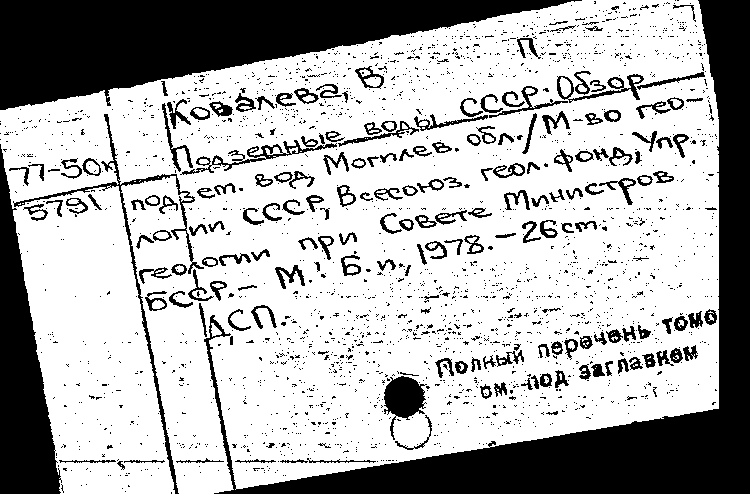 П
Ковалева, В
77-50к Подземные воды СССР: Обзор
5791 подзем. вод, Могилев. обл./М-во гео-
логии СССР, Всесоюз. геол. фонд, Упр.
геологии при Совете Министров
БССР.- М.: Б.и., 1978.-26 ст.
ДСП.
Полный перечень томо
см. под заглавием